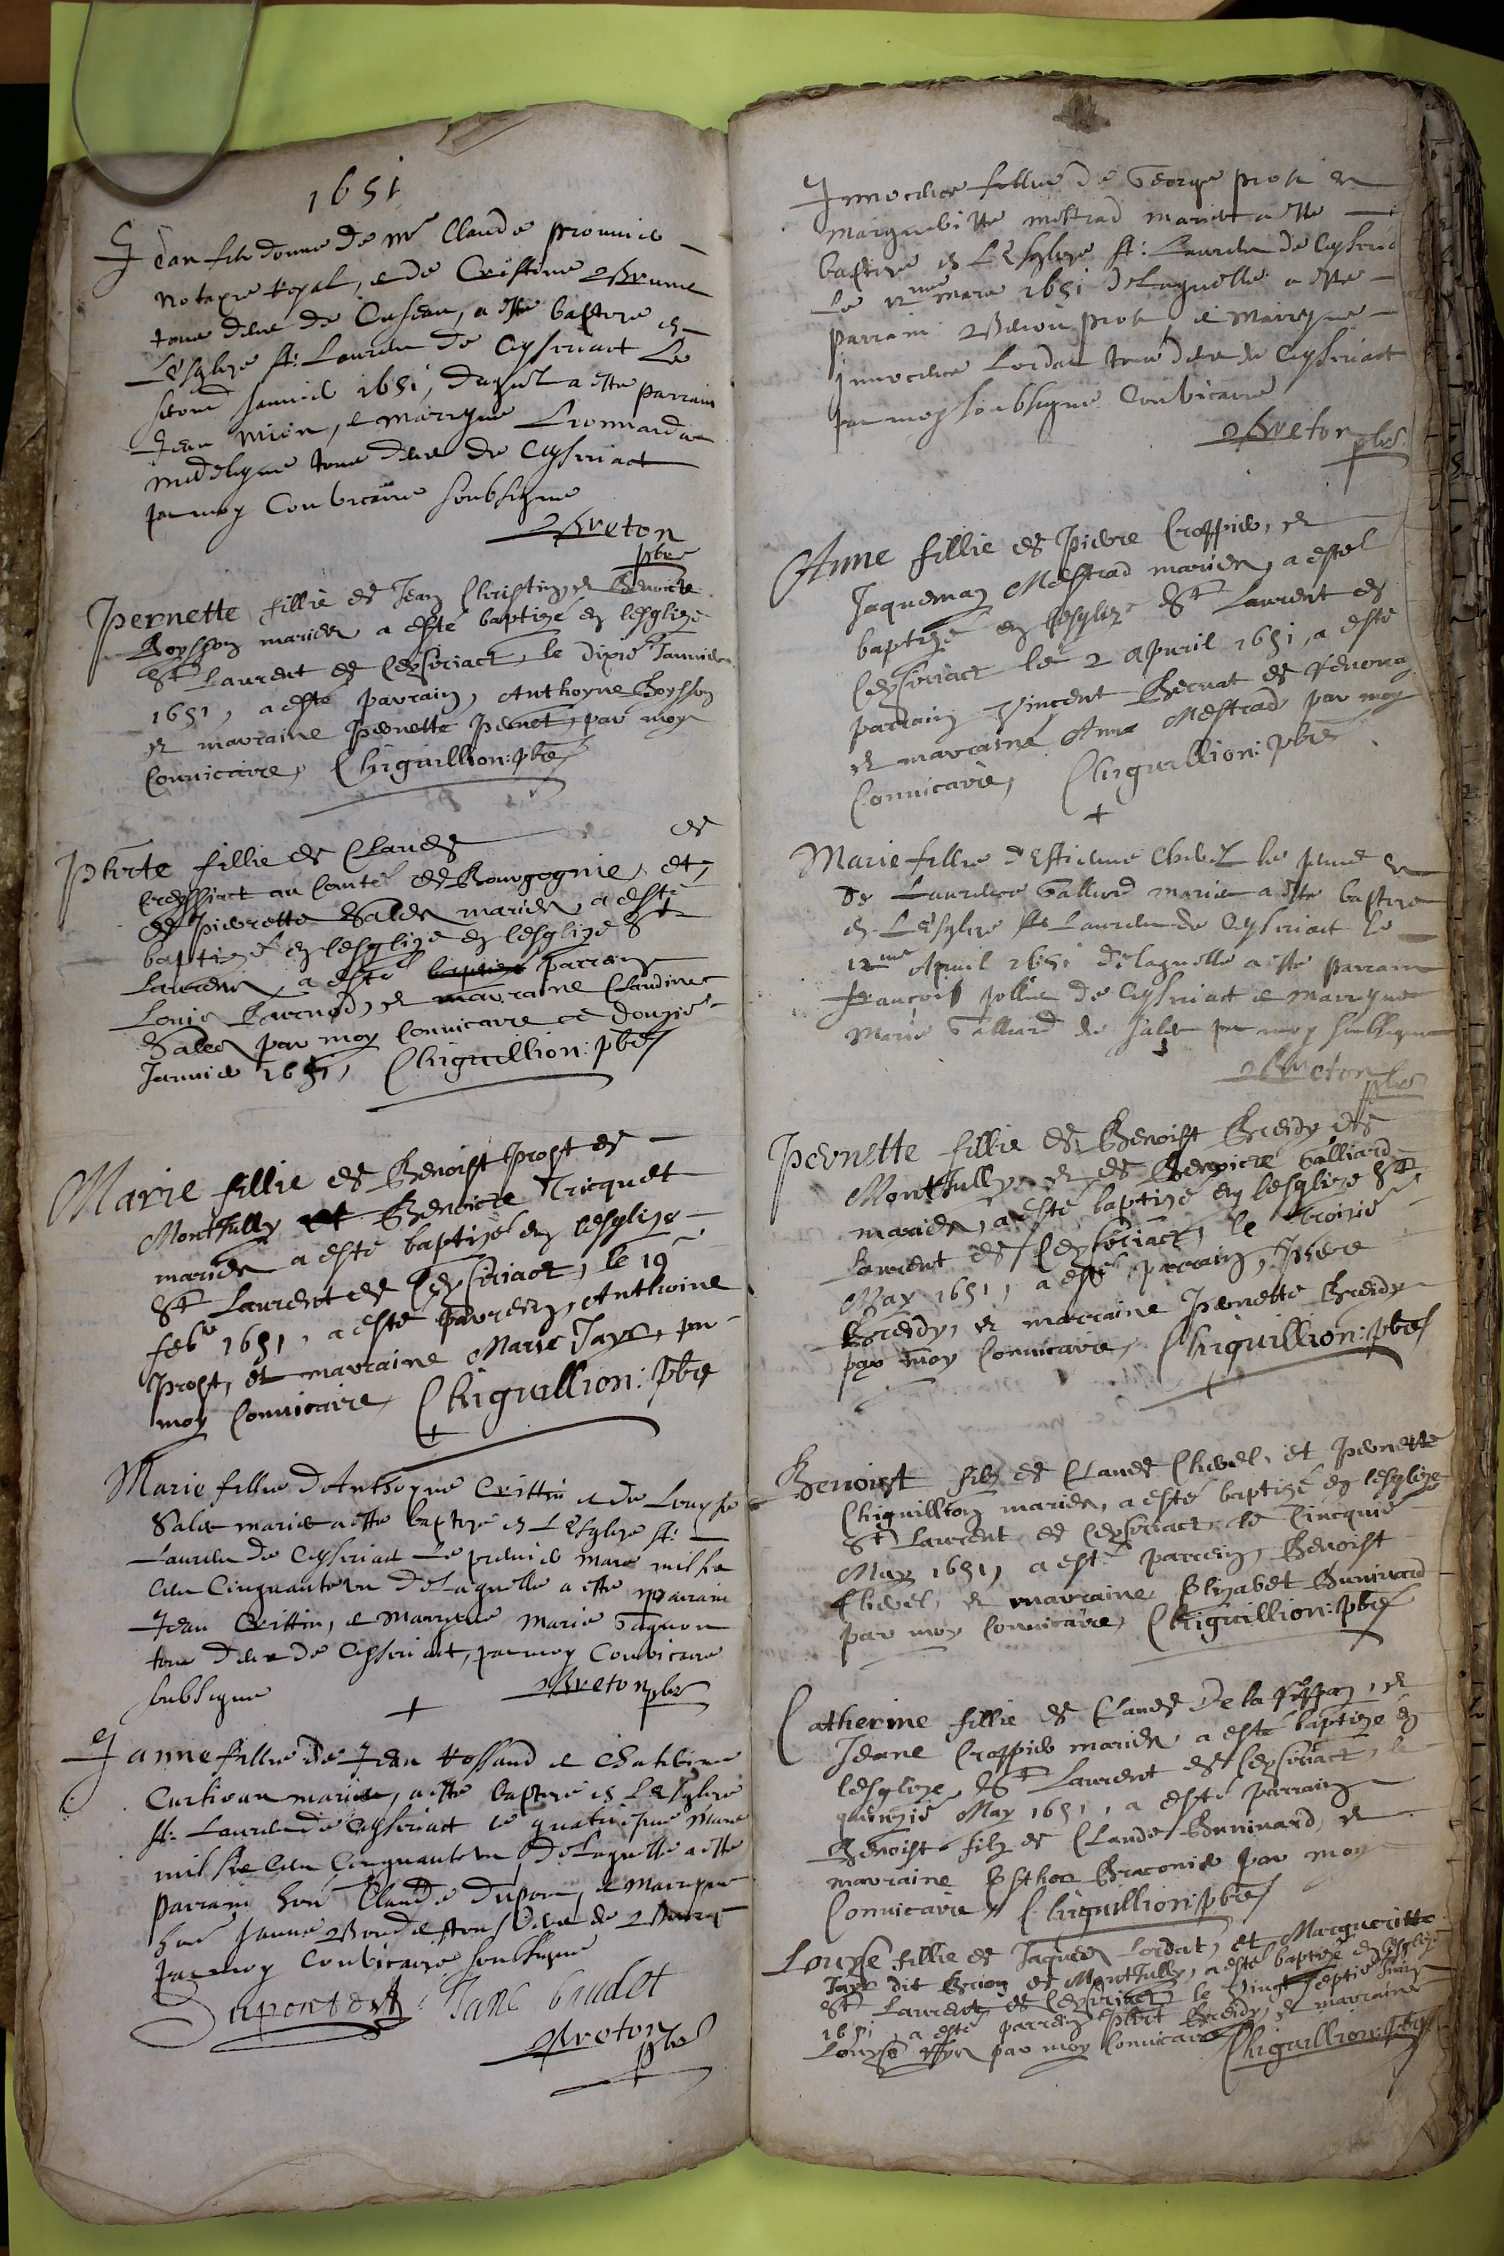 1651
Jean filz donne de me Claude
notayre Royal, et de Cristine Brunet
tous deux de Cuseau, a este baptize en
L'Esglize st: Laurent de Ceyseriact Le
second Janvier 1651, duquel a este parrain
Jean et marryne Leonarda
tous deux de Ceyseriact
par moy Convicaire soubsigne
Breton
pbre
Pernette fillie de Jean Christin, et Benoicte
Boysson mariez a esté baptizé en lesglize
St Laurent de Ceyseriact, le dixie Janvier
1651, a esté parrain, Anthoyne Boysson
et marraine Pernette Pernet, par moy
Convicaire, Chiguillion: pbre
Pbrte fillie de Claude de
Cressiact au Comté de Bourgognie, et
de Pierrette Salex mariez, a esté
baptizé en lesglize en lesglize St
Laurent, a esté baptizé parrein
Louis et marraine Claudine
Salex par moy Convicaire ce douzie
Janvier 1651, Chiguillion: pbre
Marie fillie de Benoist Prost de
Montfully et Benoicte Tricquet
mariez a esté baptizé en lesglize
St Laurent de Ceyseriact, le 19
febr 1651, a esté parrein, Anthoine
Prost, et marraine Marie Jayr, par
moy Convicaire, Chiguillion: pbre
Marie fillie d'Anthoyne Crittin et de Louyse
Salex mariez a este baptize en L'Esglize st:
Laurent de Ceyseriact Le premier Mars mil six
cens Cinquante un de Laquelle a este parrain
Jean Crittin, et Marryne Marie
tous deux de Ceyseriact, par moy Convicaire
soubsigne Breton pbr
Janne fillie de Jean Rossand et Chaterine
Curtivan mariez, a este baptize en L'Esglize
st: Laurent de Ceyseriact le quatriesme Mars
mil six cens Cinquante un, de Laquelle a este
parrain hon Claude Dupont, et Marryne
hon Janne tous deux de Bourg
par moy Convicaire soubsigne
Dupontest Jane baudet
Breton
pbr
Innocence fillie de George prost et
Margueritte mestrad mariez a este
baptize en L'Esglize st: Laurent de Ceyseria
Le 12me mars 1651 de Laquelle a este
parrain prost, et Marryne
Innocence Lordat tous deux de Ceyseriact
par moy soubsigne Convicaire
Breton pbr
Anne fillie de Pierre Croppier, et
Jaquemaz Mestrad mariez, a esté
baptizé en lesglize St Laurent de
Ceyseriact le 2 Apvril 1651, a esté
parrain Vincent Bernat de
et marrainé Anne Mestrad par moy
Convicaire, Chiguillion: pbre
Marie fillie d'Estienne Chevel le jeune et
de Laurence Galliard mariez a este baptize
en L'Esglize st Laurent de Ceyseriact le
12me Apvril 1651 de laquelle a este parrain
francois pollin de Ceyseriact et Marryne
Marie Galliard de par moy soubsigne
Breton pbr
Pernette fillie de Benoist Brerdy de
Montfully, et de Benoicte Galliard
mariez, a esté baptizé en lesglize St
Laurent de Ceyseriact, le troizie
May 1651, a esté parrain, Pierre
Brerdy, et marraine Pernette Brerdy
par moy Convicaire, Chiguillion: pbre
Benoist filz de Claude Chevel, et Pernette
Chiguillion mariez, a esté baptizé en lesglize
St Laurent de Ceyseriact, le Cincquie
May 1651, a esté parrein, Benoist
Chevel, et marraine, Elizabet Bunivard
par moy Convicaire, Chiguillion: pbre
Catherine fillie de Claude De la et
Jeane Croppier mariez, a esté baptizé en
lesglize, St Laurent de Ceyseriact, le
quinzie May 1651, a esté parrain
Benoist filz de Claude Bunivard, et
marraine Esther Braconier par moy
Convicaire, Chiguillion: pbre
Louyse fillie de Jaques Lordat, et Margueritte
Jayr dit Brion de Montfully, a esté baptizé en lesglize
St Laurent de Ceyseriact le Vingt septie Juin
1651, a esté parrein pbert Brerdy, et marraine
Louyse par moy Convicaire Chiguillion: pbre